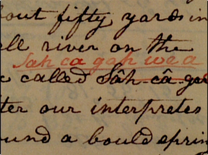 out fifty yards in
ll river on the
Sâh câ gah we a
called Sâh câ ga
ter our interpretes
ound a bould sprin